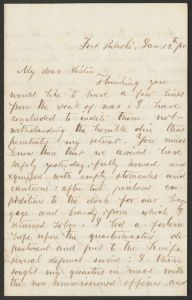 Fort Pulaski, Jan. 12th /65
My dear Hattie
Thinking you
would like to have a few lines
from the seat of war; I have
concluded to indite them not-
withstanding the terrible din that
penetrates my retreat. You must
know then that we arrived here
safely yesterday, fully armed and
equipped with empty stomachs and
canteens; after two perilous ex-
peditions to the dock for our bag-
gage and brandy; from which I
returned sober; I led a forlorn
hope upon the quartermaster's de-
partment and put to the knife
several defunct swine; I then
sought my quarters in mess with
the non commissioned officers and